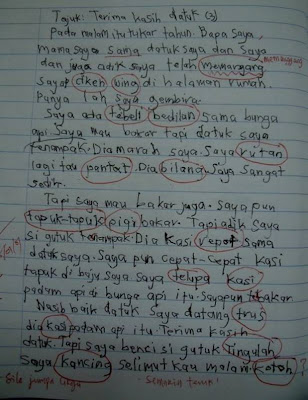 Tajuk: Terima kasih datuk (3)
Pada malam itu tukar tahun. Bapa saya,
mama saya sama datuk saya dan saya
dan juga adik saya telah memargang
memanggang
saya dkeh bing di halaman rumah.
Punya lah saya gembira.
Saya ada tebeli bedilan sama bunga
api. Saya mau bakar tapi datuk saya
tenampak. Dia marah saya. Saya rutan
lagi tau pantat. Dia bilang saya sangat
Tapi saya mau bakar juga. Saya pun
tapuk-tapuk pigi bakar. Tapi adik saya
si gutuk tenampak. Dia kasi repot sama
datuk saya. Saya pun cepat-cepat kasi
tapuk di baju saya saya telupa kasi
padam api di bunga api itu. Saya pun tebakar
Nasib baik datuk saya datang trus
dia kasi padam api itu. Terima kasih
datuk. Tapi saya benci si gutuk tingulah
saya kancing selimut kau malam katoh
Sila jumpa cikgu